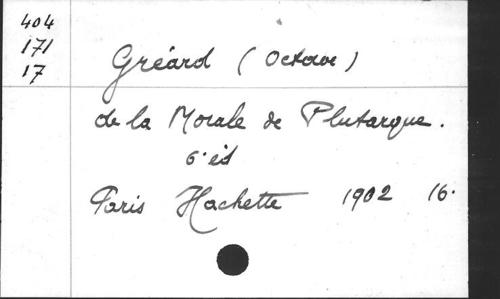 404
171
17
Gréard (Octave)
de la Morale de Plutarque.
6.éd
Paris Hachette 1902 16.